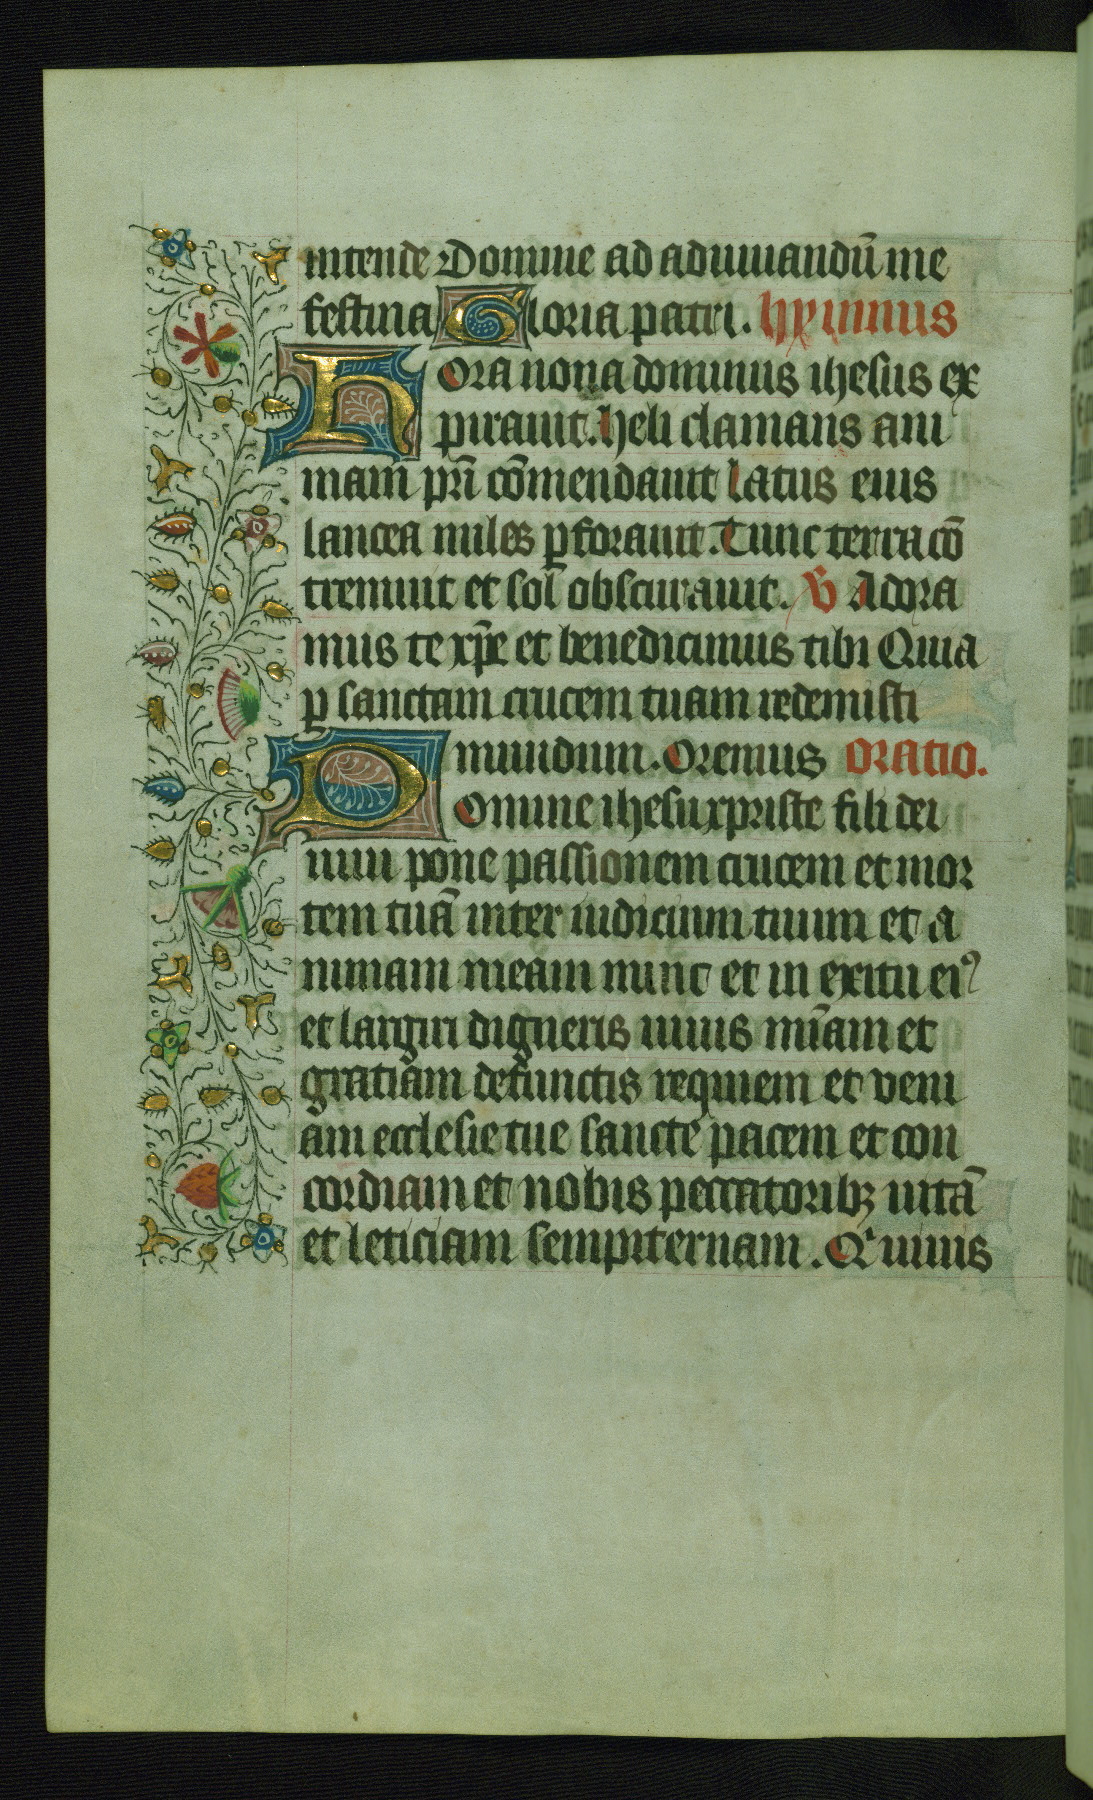 intende Domine ad adiuuandū me
festina Gloria patri. hympnus
Hora nona dominus ihesus ex
pirauit. heli clamans ani
mam pri̅ co̅mendauit latus eius
lancea miles ꝑforauit. Tunc terra co̅
tremuit et sol obscurauit. V̸ Adora
mus te xp̅e et benedicimus tibi Quia
ꝑ sanctam crucem tuam redemisti
mundum. Oremus Oratio.
Domine ihesu xpriste fili dei
uiui pone passionem crucem et mor
tem tuā inter iudicium tuum et a
nimam meam nunc et in exitu eiꝰ
et largiri digneris uiuis mi̅am et
gratiam defunctis requiem et veni
am ecclesie tue sancte pacem et con
cordiam et nobis peccatoribꝫ uitā
et leticiam sempiternam. Qͥ uiuis